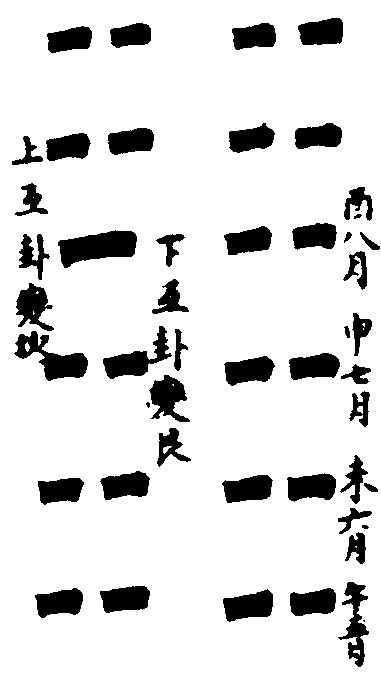 酉八月
申七月
未六月
午五月
下互卦變艮
上互卦變坎